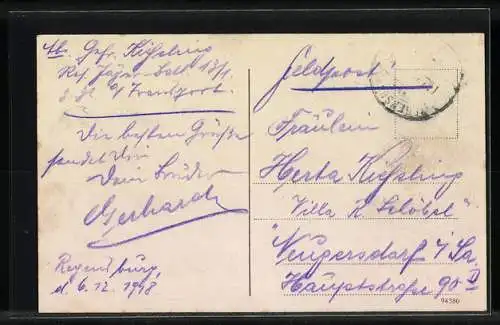 Abs. Gefr. Kießling
Res. Jäger-Batl. 13/1.
z. Zt. a/Transport.
Die besten Grüße
sendet Dir
Dein Bruder
Gerhardt
Regensburg,
d. 6.12.1918
Feldpost
Fräulein
Herta Kießling
Villa R.
Neugersdorf i/Sa.
Hauptstraße 90 D
94380